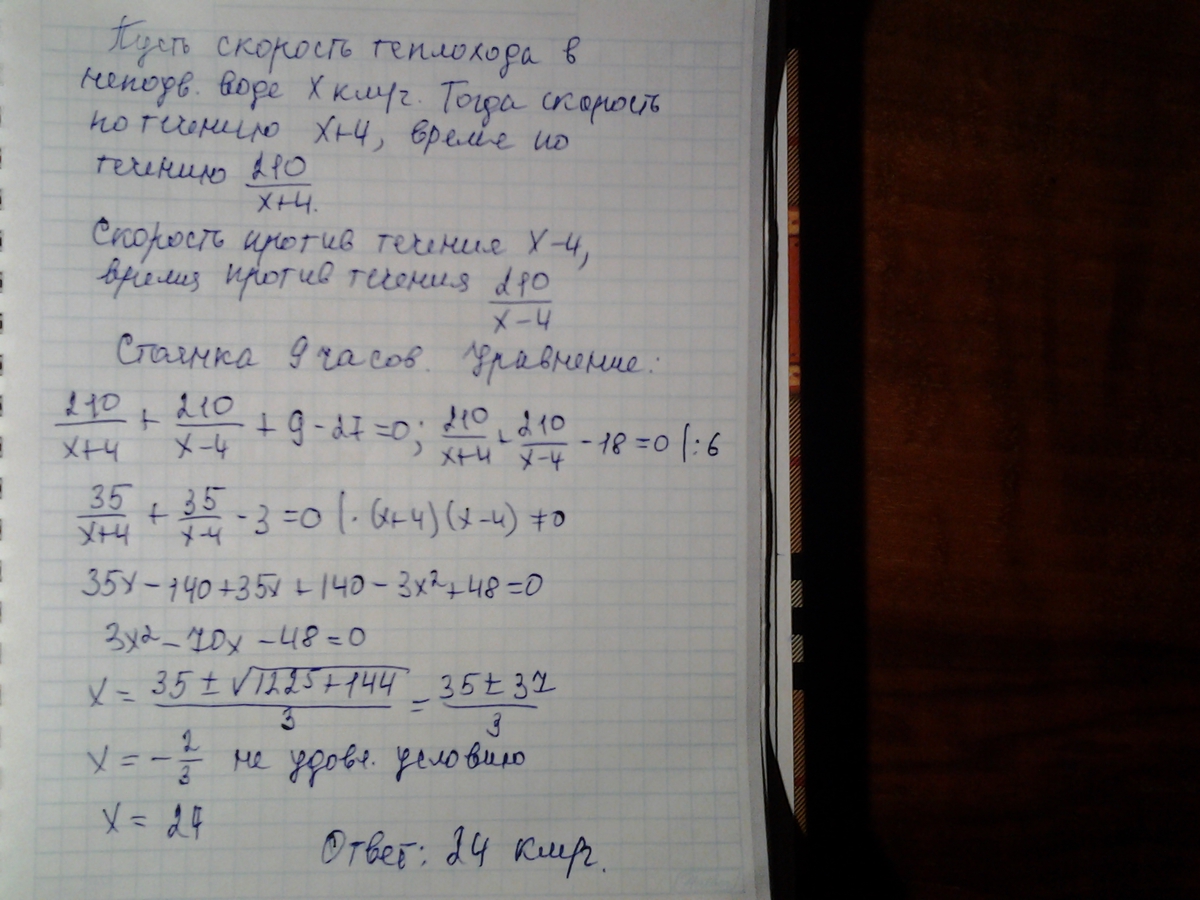 Пусть скорость теплохода в
неподв. воде х км/ч. Тогда скорость
по течению х+4, время по
течению 210/(х+4).
Скорость против течения х-4,
время против течения 210/(х-4)
Стоянка 9 часов. Уравнение:
210/(х+4) + 210/(х-4) + 9 - 27 = 0; 210/(х+4) + 210/(х-4) - 18 = 0 |:6
35/(х+4) + 35/(х-4) - 3 = 0 |· (х+4)(х-4) ≠ 0
35х - 140 + 35х + 140 - 3х² + 48 = 0
3х² - 70х - 48 = 0
х = (35 ± √(1225+144))/3 = (35 ± 37)/3
х = -2/3 не удовл. условию
х = 24
Ответ: 24 км/ч.